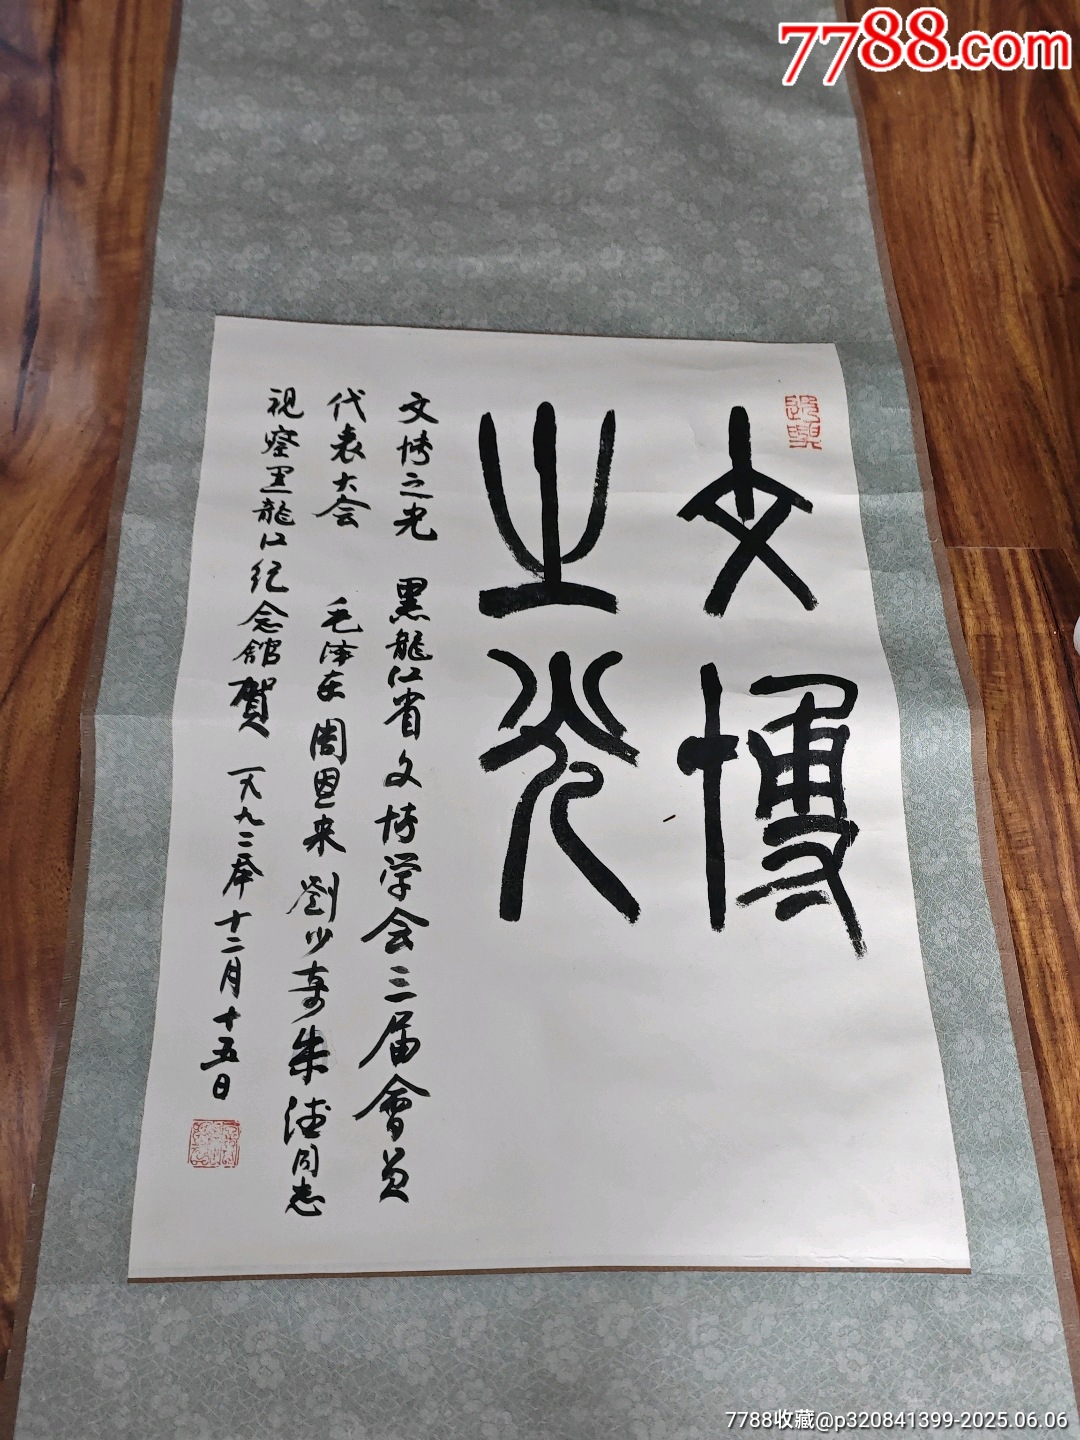 7788.com
文博
之光
文博之光 黑龍江省文博学会三届會员
代表大会 毛泽东周恩来劉少奇朱德同志
视察黑龍江纪念館賀 一九九二年十二月十五日
7788收藏@p320841399-2025.06.06